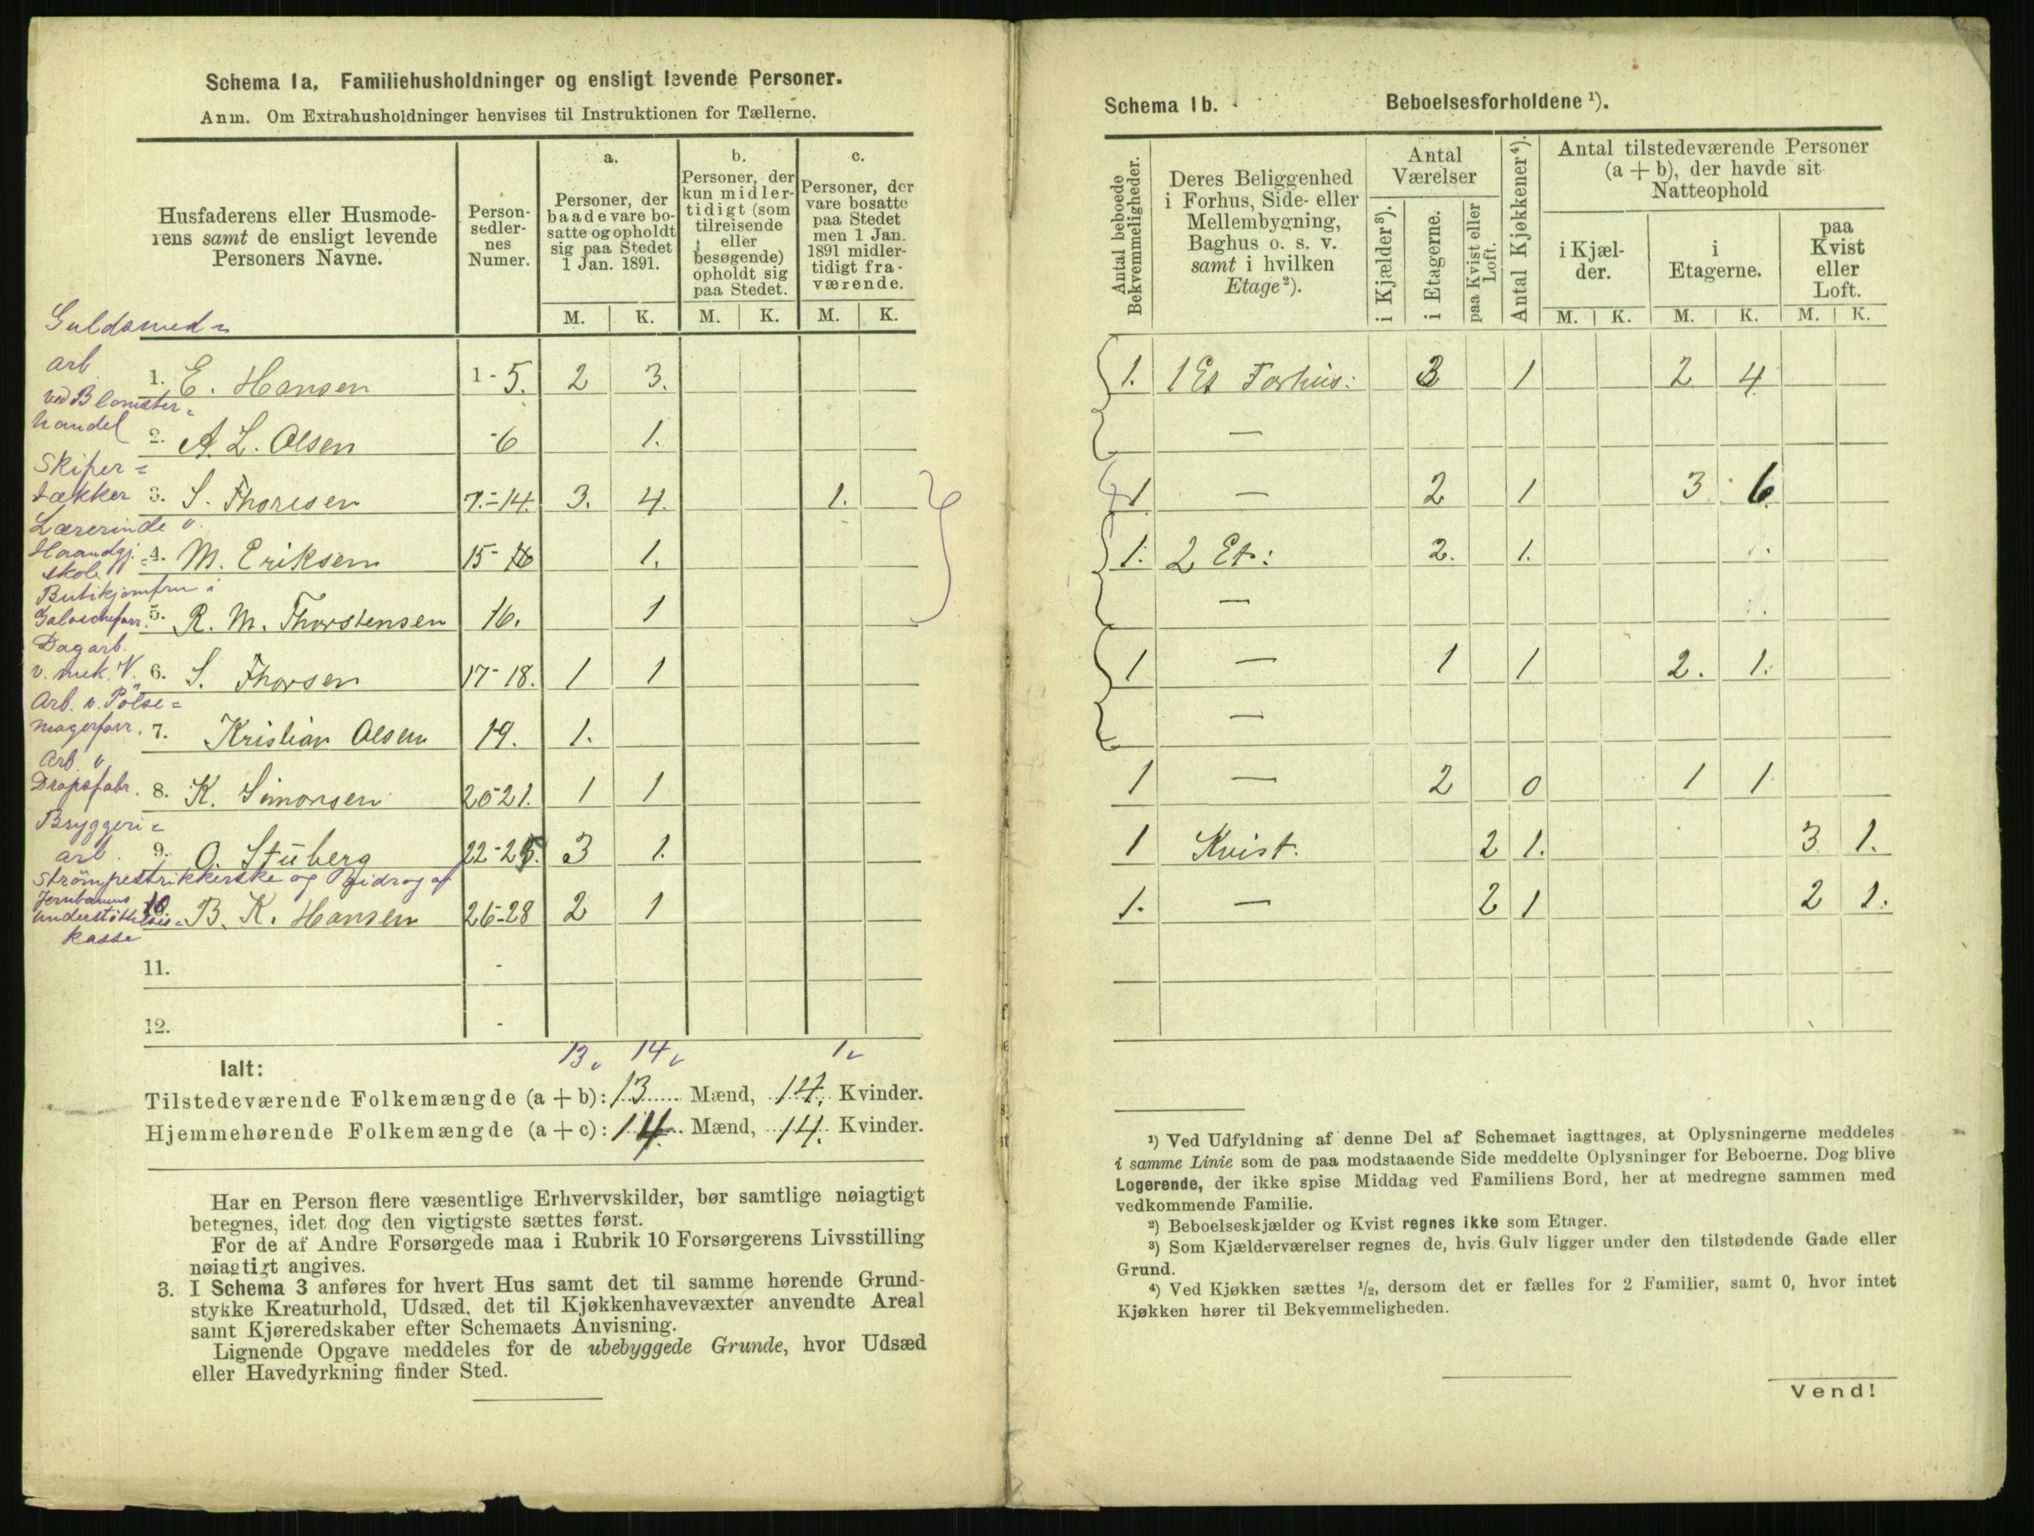 Schema 1a. Familiehusholdninger og ensligt levende Personer.
Anm. Om Extrahusholdninger henvises til Instruktionen for Tællerne.
Husfaderens eller Husmoderens samt de ensligt levende Personers Navne.
Person-
sedler-
nes
Numer.
a.
Personer, der
baade vare bo-
satte og opholdt
sig paa Stedet
1 Jan. 1891.
b.
Personer, der
kun midler-
tidigt (som
tilreisende
eller
besøgende)
opholdt sig
paa Stedet.
c.
Personer, der
vare bosatte
paa Stedet
men 1 Jan.
1891 midler-
tidigt fra-
værende.
M. K. M. K. M. K.
Guldsmed=
arb
1. E. Hansen 1-5. 2 3.
ved Blomster=
handel
2. A. L. Olsen -6 1.
Skifer=
tækker 3. S. Thoresen 7.-14. 3. 4. 1.
Lærerinde v.
Haandgj.=
skole
4. M. Eriksen 15-16 1.
Butikjomfru i
Galoscheforr. 5. R. M. Thorstensen 16. 1
Dagarb.
v. mek. V. 6. S. Thorsen 17-18. 1 1
Arb. v. Pölse=
magerforr. 7. Kristian Olsen 19. 1.
Arb. v
Dropsfabr. 8. K. Simonsen 20-21. 1 1
Bryggeri=
arb. 9. O. Stuberg 22-25. 3 1.
Strømpestrikkerske og Bidrag af
Jernbanens
understöttelses=
kasse
10 B. K. Hansen 26-28 2 1
11. -
12. -
13 v 14 v 1 v
Ialt:
Tilstedeværende Folkemængde (a + b): 13 Mænd, 14. Kvinder.
Hjemmehørende Folkemængde (a + c): 14. Mænd, 14. Kvinder.
Har en Person flere væsentlige Erhvervskilder, bør samtlige nøiagtigt
betegnes, idet dog den vigtigste sættes først.
For de af Andre Forsørgede maa i Rubrik 10 Forsørgerens Livsstilling
nøiagtigt angives.
3. I Schema 3 anføres for hvert Hus samt det til samme hørende Grund-
stykke Kreaturhold, Udsæd, det til Kjøkkenhavevæxter anvendte Areal
samt Kjøreredskaber efter Schemaets Anvisning.
Lignende Opgave meddeles for de ubebyggede Grunde, hvor Udsæd
eller Havedyrkning finder Sted.
Schema 1b. Beboelsesforholdene ¹).
Antal beboede
Bekvemmeligheder.
Deres Beliggenhed
i Forhus, Side- eller
Mellembygning,
Baghus o. s. v.
samt i hvilken
Etage²).
Antal
Værelser
i Kjælder³).
i Etagerne.
paa Kvist eller
Loft.
Antal Kjøkkener⁴).
Antal tilstedeværende Personer
(a + b), der havde sit
Natteophold
i Kjæl-
der.
i
Etagerne.
paa
Kvist
eller
Loft.
M. K. M. K. M. K.
1. 1 Et Forhus: 3 1 2 4
—
1 — 2 1 3 6
1. 2 Et: 2. 1.
—
1 — 1 1 2. 1.
—
1 — 2 0 1 1
1 Kvist. 2 1. 3 1.
1. — 2 1 2 1.
¹) Ved Udfyldning af denne Del af Schemaet iagttages, at Oplysningerne meddeles
i samme Linie som de paa modstaaende Side meddelte Oplysninger for Beboerne. Dog blive
Logerende, der ikke spise Middag ved Familiens Bord, her at medregne sammen med
vedkommende Familie.
²) Beboelseskjælder og Kvist regnes ikke som Etager.
³) Som Kjælderværelser regnes de, hvis Gulv ligger under den tilstødende Gade eller
Grund.
⁴) Ved Kjøkken sættes ½, dersom det er fælles for 2 Familier, samt 0, hvor intet
Kjøkken hører til Bekvemmeligheden.
Vend!